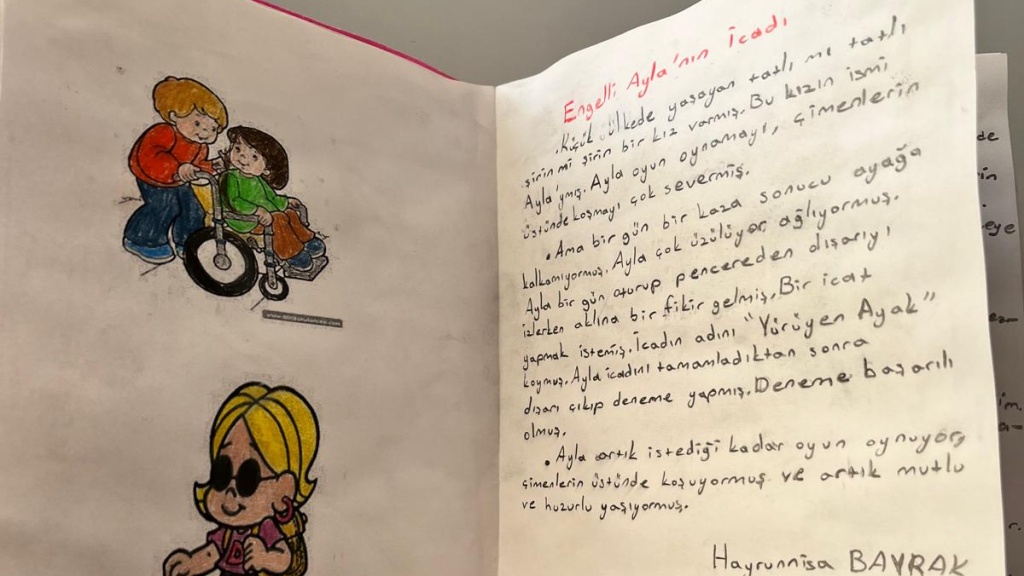 Engelli Ayla'nın İcadı
.Küçük ülkede yaşayan tatlı mı tatlı
şirin mi şirin bir kız varmış. Bu kızın ismi
Ayla'ymış. Ayla oyun oynamayı, çimenlerin
üstünde koşmayı çok severmiş.
. Ama bir gün bir kaza sonucu ayağa
kalkamıyormuş. Ayla çok üzülüyor ağlıyormuş.
Ayla bir gün oturup pencereden dışarıyı
izlerken aklına bir fikir gelmiş. Bir icat
yapmak istemiş. İcadın adını "Yürüyen Ayak"
koymuş. Ayla icadını tamamladıktan sonra
dışarı çıkıp deneme yapmış. Deneme başarılı
olmuş.
. Ayla artık istediği kadar oyun oynuyor,
çimenlerin üstünde koşuyormuş ve artık mutlu
ve huzurlu yaşıyormuş.
Hayrunnisa BAYRAK